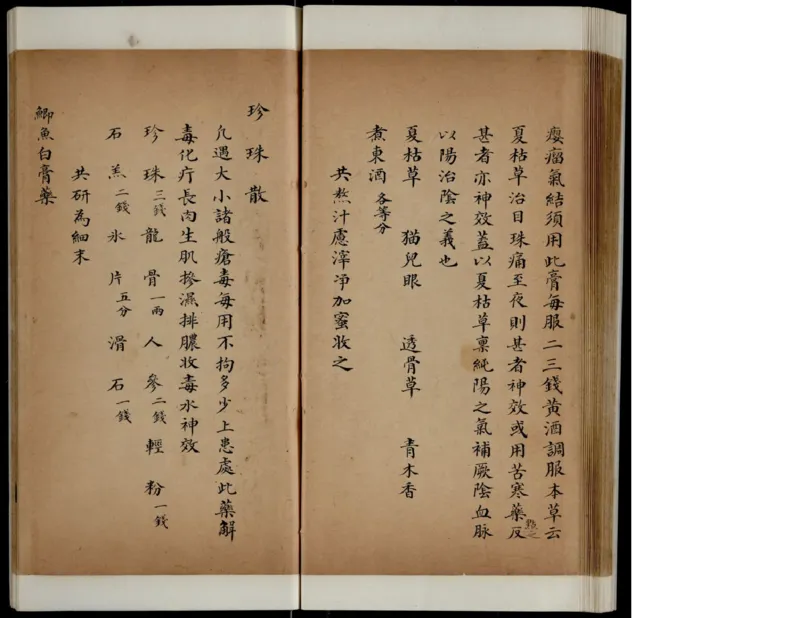 瘿瘤氣結須用此膏每服二三錢黄酒調服本草云
夏枯草治目珠痛至夜則甚者神效或用苦寒藥反
點之
甚者亦神效蓋以夏枯草禀純陽之氣補厥陰血脉
以陽治陰之義也
夏枯草 猫兒眼 透骨草 青木香
煮東酒各等分
共熬汁慮滓净加蜜收之
珍珠散
凢遇大小諸般瘡毒每用不拘多少上患處此藥解
毒化疔長肉生肌摻濕排膿收毒水神效
珍珠三錢 龍骨一兩 人參二錢 輕粉一錢
石羔二錢 氷片五分 滑石一錢
共研為細末
鯽魚白膏藥